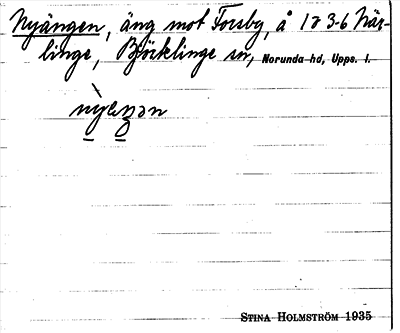 Nyängen, äng mot Forsby, å 1 o 3-6 När-
linge, Björklinge sn, Norunda hd, Upps. l.
STINA HOLMSTRÖM 1935